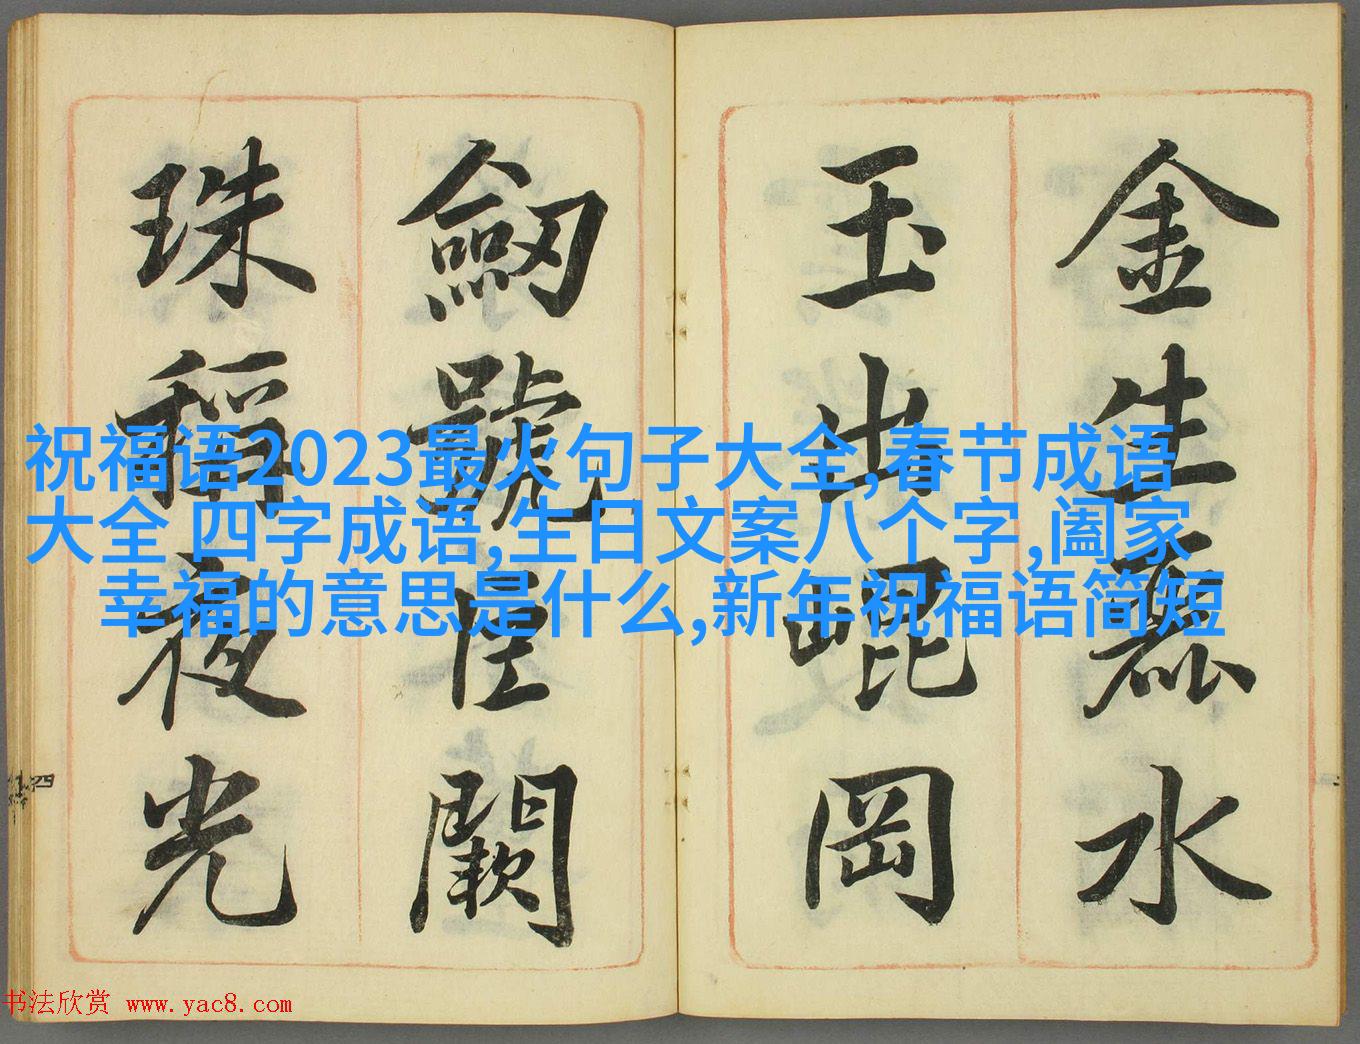 金生麗水
玉出崐岡
劒號巨闕
珠稱夜光
祝福语2023最火句子大全,春节成语
大全 四字成语,生日文案八个字,阖家
幸福的意思是什么,新年祝福语简短
四
书法欣赏 www.yac8.com